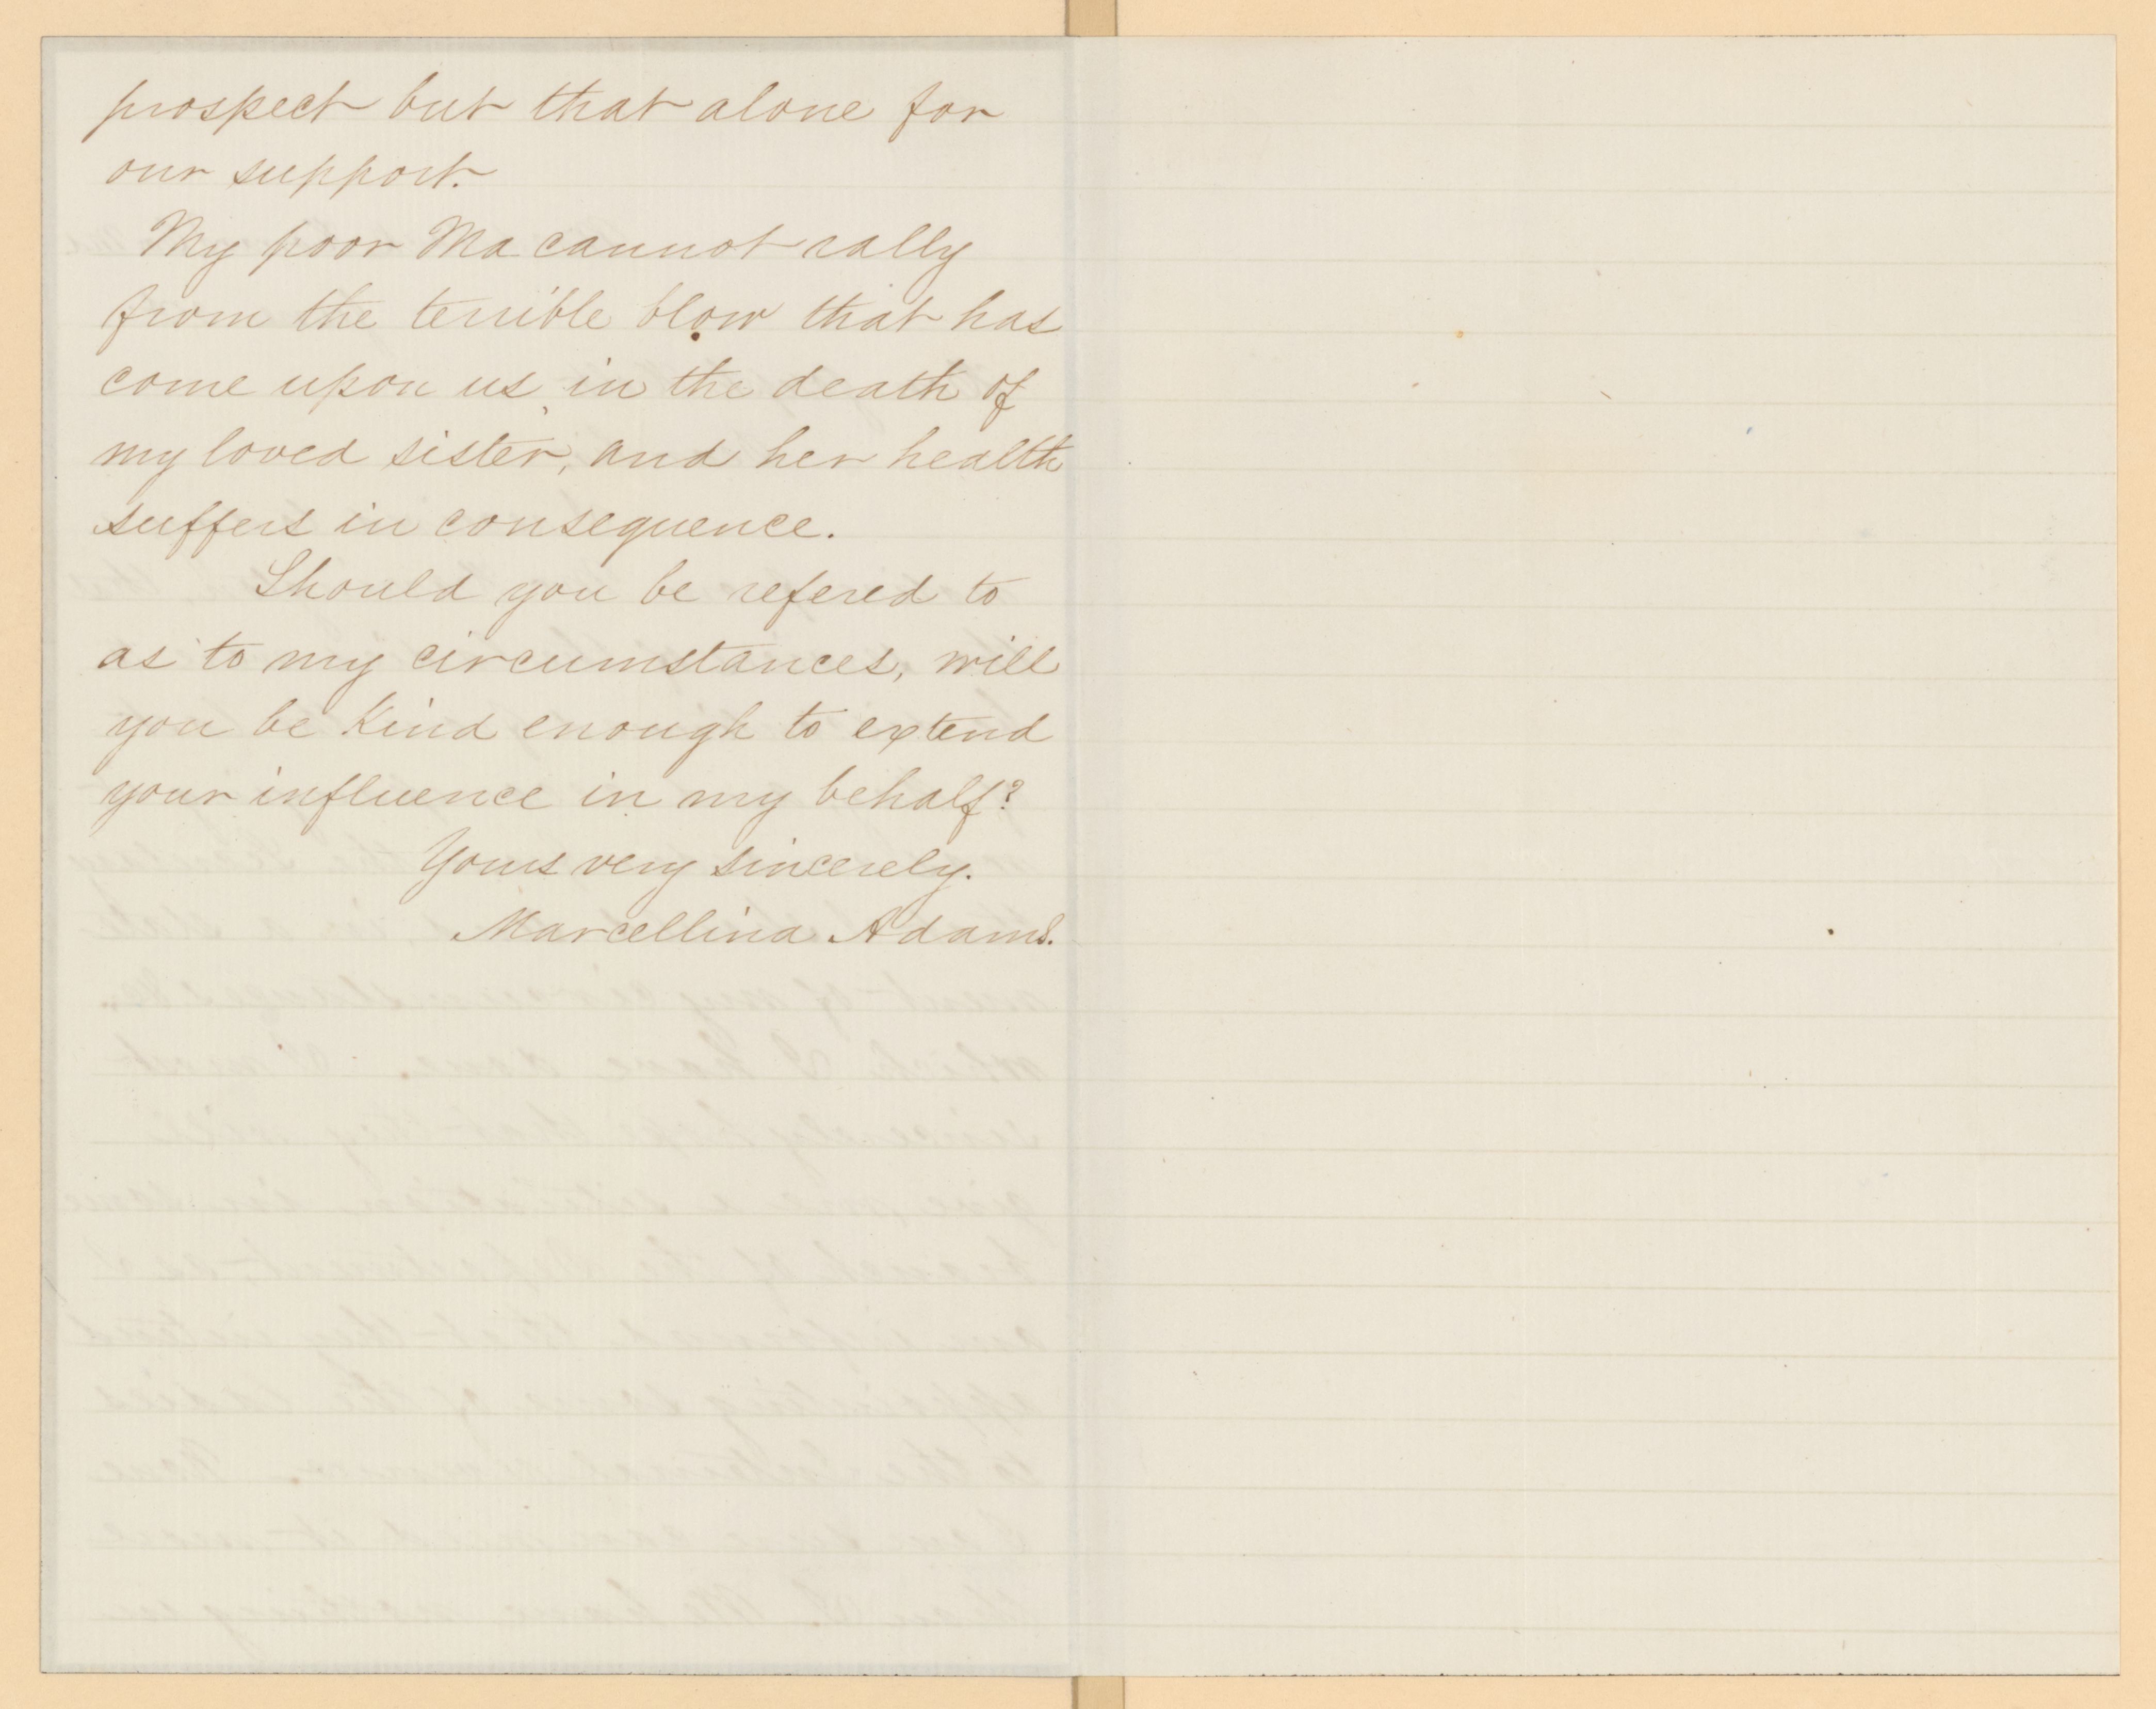 prospect but that alone for
our support.
My poor Ma cannot rally
from the terrible blow that has
come upon us in the death of
my loved sister, and her health
suffers in consequence.
Should you be refered to
as to my circumstances, will
you be kind enough to extend
your influence in my behalf?
Yours very sincerely.
Marcellina Adams.